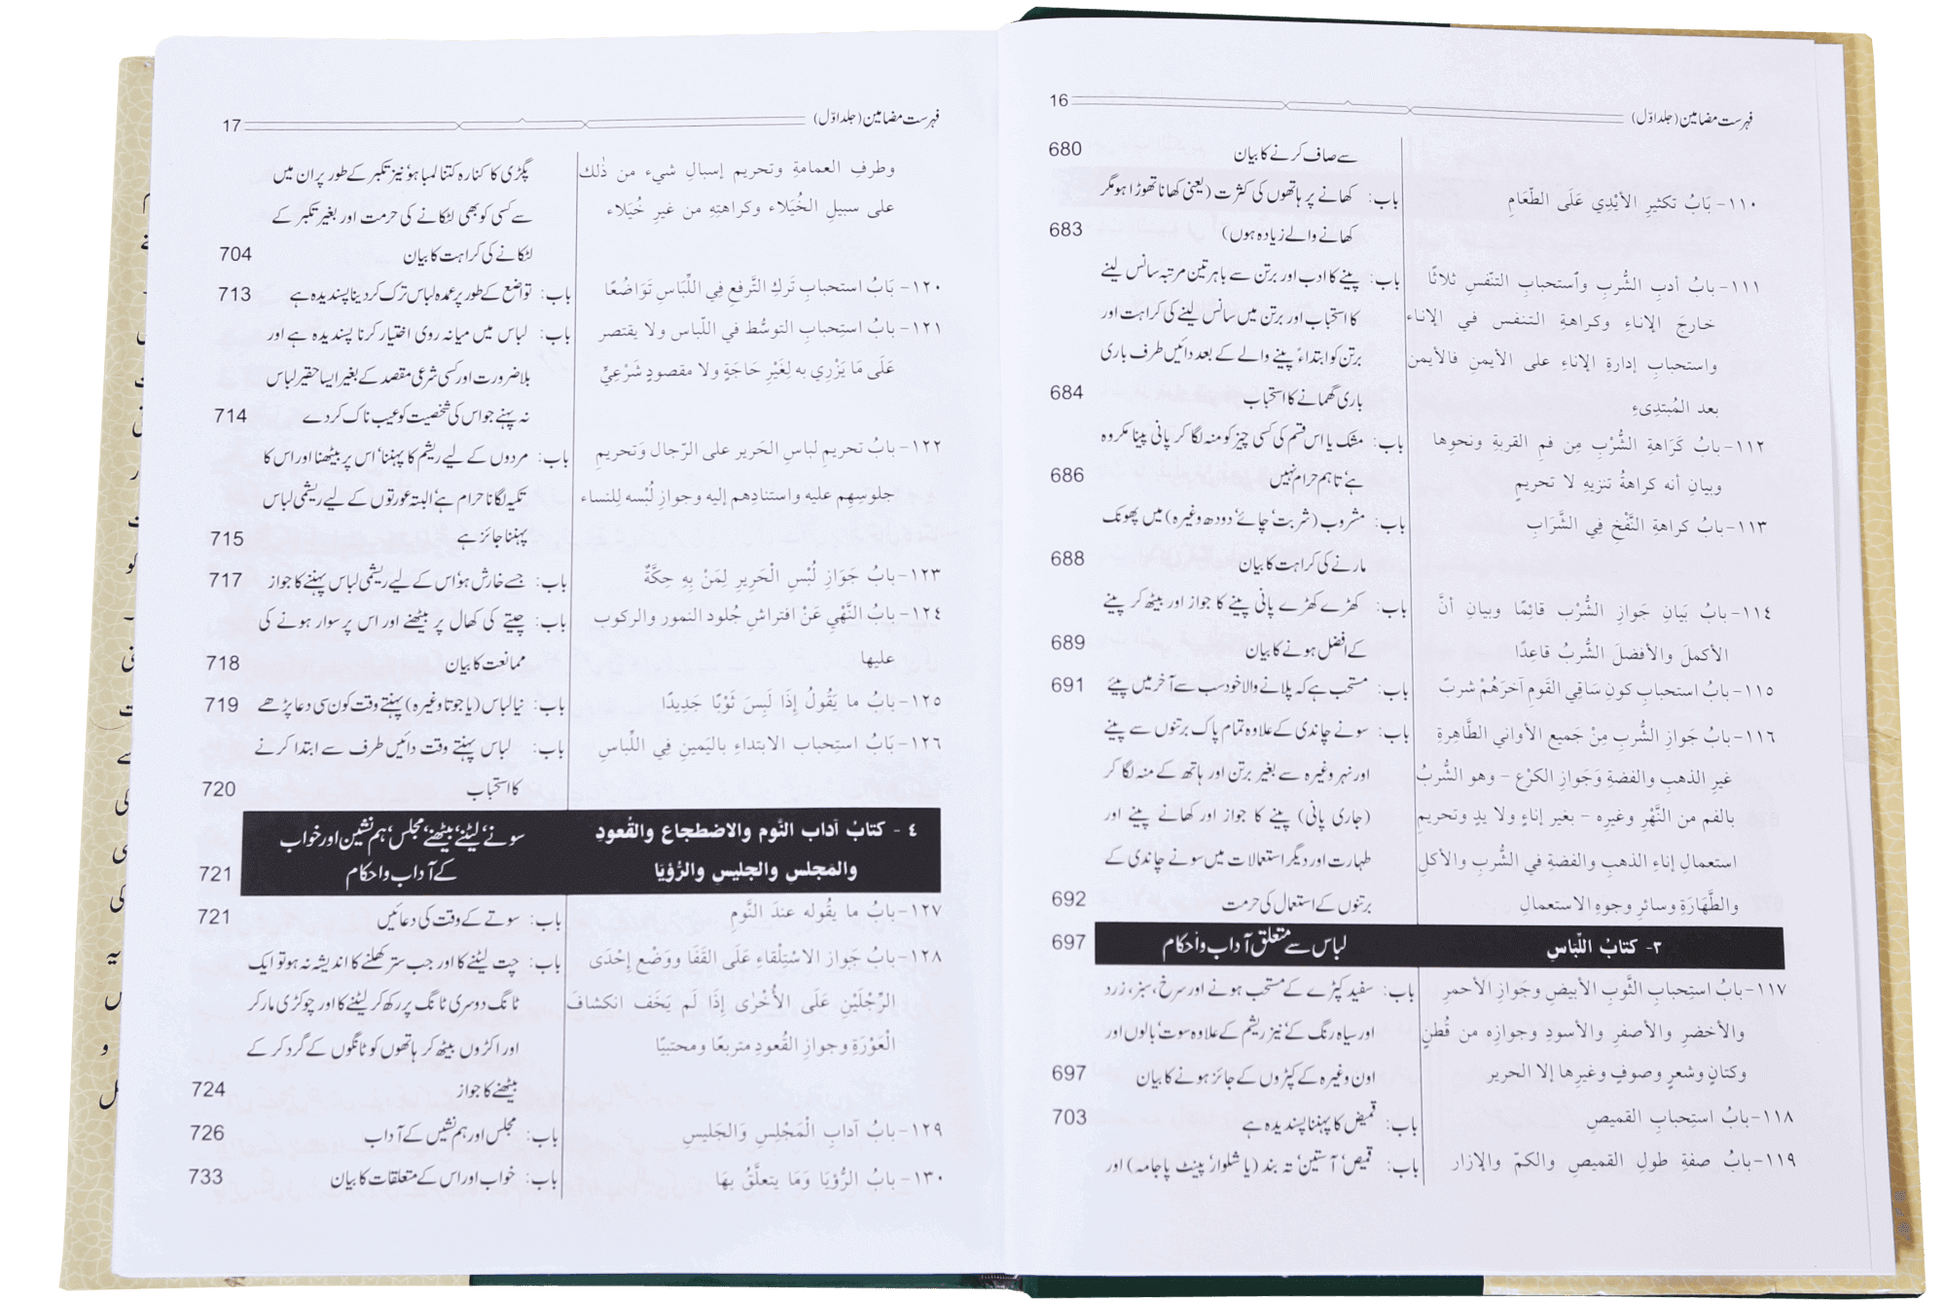 فہرست مضامین (جلد اوّل) 16
سے صاف کرنے کا بیان 680
١١٠- بَابُ تكثيرِ الأيْدِي عَلَى الطّعَامِ باب: کھانے پر ہاتھوں کی کثرت (یعنی کھانا تھوڑا ہو مگر
کھانے والے زیادہ ہوں) 683
١١١- بابُ أدبِ الشُّربِ وٱستحبابِ التنّفسِ ثلاثًا باب: پینے کا ادب اور برتن سے باہر تین مرتبہ سانس لینے
خارجَ الإناءِ وكراهةِ التنفس في الإناء کا استحباب اور برتن میں سانس لینے کی کراہت اور
واستحبابِ إدارةِ الإناءِ على الأيمنِ فالأيمن برتن کو ابتداءً پینے والے کے بعد دائیں طرف باری
بعد المُبتدِىءِ باری گھمانے کا استحباب 684
١١٢- بابُ كَرَاهةِ الشُّرْبِ مِن فمِ القربةِ ونحوِها باب: مشک یا اس قسم کی کسی چیز کو منہ لگا کر پانی پینا مکروہ
وبيانِ أنه كراهةُ تنزيهِ لا تحريمٍ ہے تاہم حرام نہیں 686
١١٣- بابُ كراهةِ النَّفْخِ فِي الشَّرَابِ باب: مشروب (شربت‘ چائے‘ دودھ وغیرہ) میں پھونک
مارنے کی کراہت کا بیان 688
١١٤- بابُ بَيَانِ جَوازِ الشُّرْب قائِمًا وبيانِ أنَّ باب: کھڑے کھڑے پانی پینے کا جواز اور بیٹھ کر پینے
الأكملَ والأفضلَ الشُّربُ قاعِدًا کے افضل ہونے کا بیان 689
١١٥- بابُ استحبابِ كونِ سَاقِي القَومِ آخرَهُمْ شربً باب: مستحب ہے کہ پلانے والا خود سب سے آخر میں پیئے 691
١١٦- بابُ جَوازِ الشُّربِ مِنْ جَميعِ الأواني الطَّاهِرةِ باب: سونے چاندی کے علاوہ تمام پاک برتنوں سے پینے
غيرِ الذهبِ والفضةِ وَجَوازِ الكرْع - وهو الشُّربُ اور نہر وغیرہ سے بغیر برتن اور ہاتھ کے منہ لگا کر
بالفم من النَّهْرِ وغيرِه - بغير إناءٍ ولا يدٍ وتحريمِ (جاری پانی) پینے کا جواز اور کھانے پینے اور
استعمالِ إناءِ الذهبِ والفضةِ في الشُّربِ والأكلِ طہارت اور دیگر استعمالات میں سونے چاندی کے
والطَّهَارَةِ وسائرِ وجوهِ الاستعمالِ برتنوں کے استعمال کی حرمت 692
٣- كتابُ اللّبَاسِ لباس سے متعلق آداب و احکام 697
١١٧- بابُ استِحبابِ الثَّوبِ الأبيضِ وجَوازِ الأحمرِ باب: سفید کپڑے کے مستحب ہونے اور سرخ، سبز، زرد
والأخضرِ والأصفرِ والأسودِ وجوازِه من قُطنٍ اور سیاہ رنگ کے‘ نیز ریشم کے علاوہ سوت‘ بالوں اور
وكتانٍ وشعرٍ وصوفٍ وغيرِها إلا الحرير اون وغیرہ کے کپڑوں کے جائز ہونے کا بیان 697
١١٨- بابُ استِحبابِ القميصِ باب: قمیض کا پہننا پسندیدہ ہے 703
١١٩- بابُ صفةِ طولِ القميصِ والكمّ والإزار باب: قمیص‘ آستین‘ تہ بند (یا شلوار‘ پینٹ پاجامہ) اور
فہرست مضامین (جلد اوّل) 17
وطرفِ العمامةِ وتحريم إسبالِ شيء من ذٰلك پگڑی کا کنارہ کتنا لمبا ہو‘ نیز تکبر کے طور پر ان میں
على سبيلِ الخُيَلاء وكراهتِهِ من غيرِ خُيَلاء سے کسی کو بھی لٹکانے کی حرمت اور بغیر تکبر کے
لٹکانے کی کراہت کا بیان 704
١٢٠- بَابُ استحبابِ تَركِ التَّرفعِ فِي اللِّبَاسِ تَوَاضُعًا باب: تواضع کے طور پر عمدہ لباس ترک کر دینا پسندیدہ ہے 713
١٢١- بابُ استِحبابِ التوسُّط في اللّباس ولا يقتصر باب: لباس میں میانہ روی اختیار کرنا پسندیدہ ہے اور
عَلَى مَا يَزْرِي به لِغَيْرِ حَاجَةٍ ولا مقصودٍ شَرْعِيٍّ بلا ضرورت اور کسی شرعی مقصد کے بغیر ایسا حقیر لباس
نہ پہنے جو اس کی شخصیت کو عیب ناک کر دے 714
١٢٢- بابُ تحريمِ لباسِ الحَرير على الرّجال وَتحريمِ باب: مردوں کے لیے ریشم کا پہننا‘ اس پر بیٹھنا اور اس کا
جلوسِهِم عليه واستنادِهم إليه وجوازِ لُبْسه لِلنساء تکیہ لگانا حرام ہے‘ البتہ عورتوں کے لیے ریشمی لباس
پہننا جائز ہے 715
١٢٣- بابُ جَوَازِ لُبْسِ الْحَرِيرِ لِمَنْ بِهِ حِكَّةٌ باب: جسے خارش ہو‘ اس کے لیے ریشمی لباس پہننے کا جواز 717
١٢٤- بابُ النَّهْيِ عَنْ افتراشِ جُلود النمور والركوب باب: چیتے کی کھال پر بیٹھنے اور اس پر سوار ہونے کی
عليها ممانعت کا بیان 718
١٢٥- بابُ ما يَقُولُ إذَا لَبِسَ ثَوْبًا جَدِيدًا باب: نیا لباس (یا جوتا وغیرہ) پہنتے وقت کون سی دعا پڑھے 719
١٢٦- بَابُ استِحباب الابتداءِ باليَمينِ فِي اللِّباسِ باب: لباس پہنتے وقت دائیں طرف سے ابتدا کرنے
کا استحباب 720
٤- كتابُ آداب النَّوم والاضطجاع والقُعودِ سونے‘ لیٹنے‘ بیٹھنے‘ مجلس‘ ہم نشین اور خواب
والمَجلسِ والجليسِ والرُّؤيَا کے آداب و احکام 721
١٢٧- بابُ ما يقُوله عندَ النَّومِ باب: سوتے کے وقت کی دعائیں 721
١٢٨- بابُ جَوازِ الاسْتِلْقاءِ عَلَى القَفَا ووَضْع إحْدَى باب: چت لیٹنے کا اور جب ستر کھلنے کا اندیشہ نہ ہو تو ایک
الرِّجْلَيْنِ عَلَى الأُخْرٰى إذَا لَم يَخَف انكشافَ ٹانگ دوسری ٹانگ پر رکھ کر لیٹنے کا اور چوکڑی مار کر
الْعَوْرَةِ وجوازِ القُعودِ متربعًا ومحتبيًا اور اکڑوں بیٹھ کر ہاتھوں کو ٹانگوں کے گرد کر کے
بیٹھنے کا جواز 724
١٢٩- بابُ آدابِ الْمَجْلِسِ وَالجَليسِ باب: مجلس اور ہم نشیں کے آداب 726
١٣٠- بابُ الرُّؤيَا وَمَا يتعلَّقُ بهَا باب: خواب اور اس کے متعلقات کا بیان 733